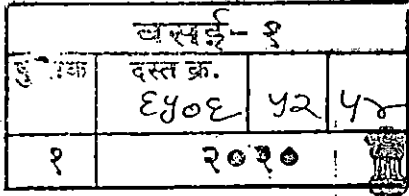 वसई-१
दस्त क्र.
६५०६ ५२ ५४
१ २०१०